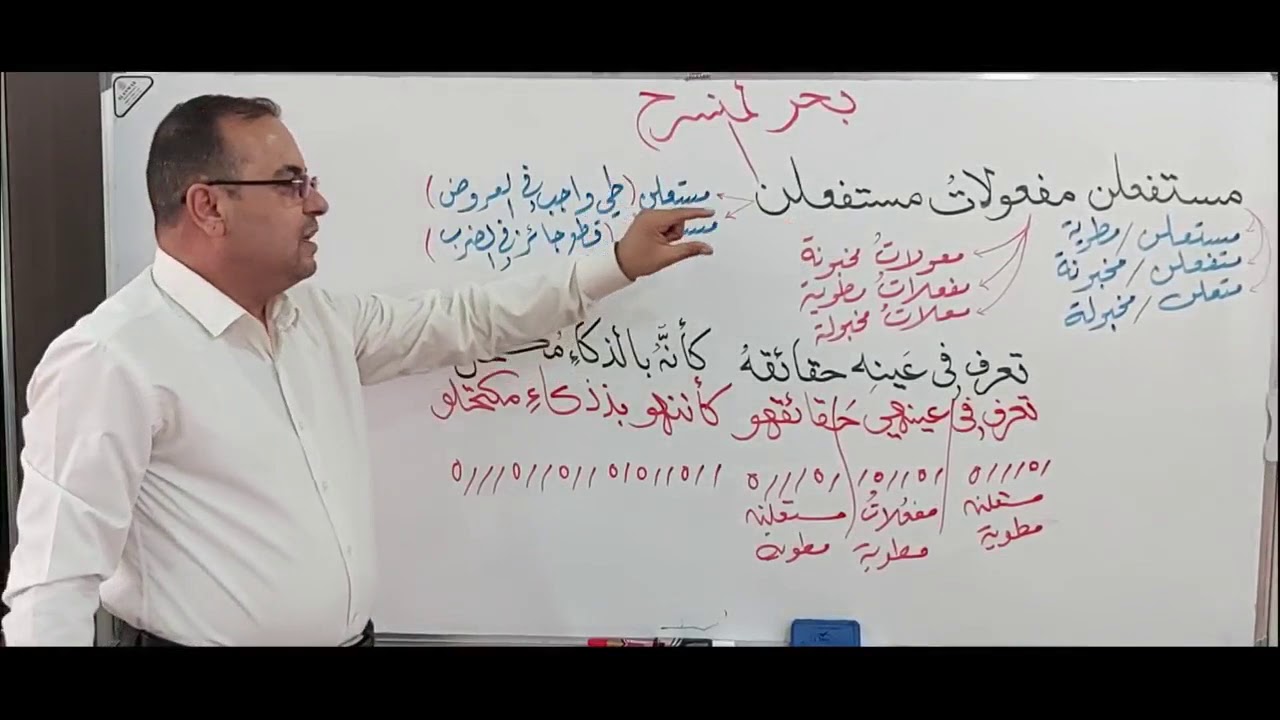 بحر المنسرح
مستفعلن مفعولاتُ مستفعلن
مستعلن / مطوية
متفعلن / مخبونة
متعلن / مخبولة
معولاتُ مخبونة
مفعلاتُ مطوية
معلاتُ مخبولة
مستعلن (طي واجب في العروض)
(قطع جائز في الضرب)
تعرف في عَينِه حقائقهُ كأنَّهُ بالذكاءِ
تعرف في عينهي حقائقهو كأننهو بذذكاءِ مكتحلو
/٥///٥ /٥//٥/ /٥///٥ //٥//٥/٥ //٥//٥///٥
مستعلن مفعُلاتُ مستعلن
مطوية مطوية مطوية